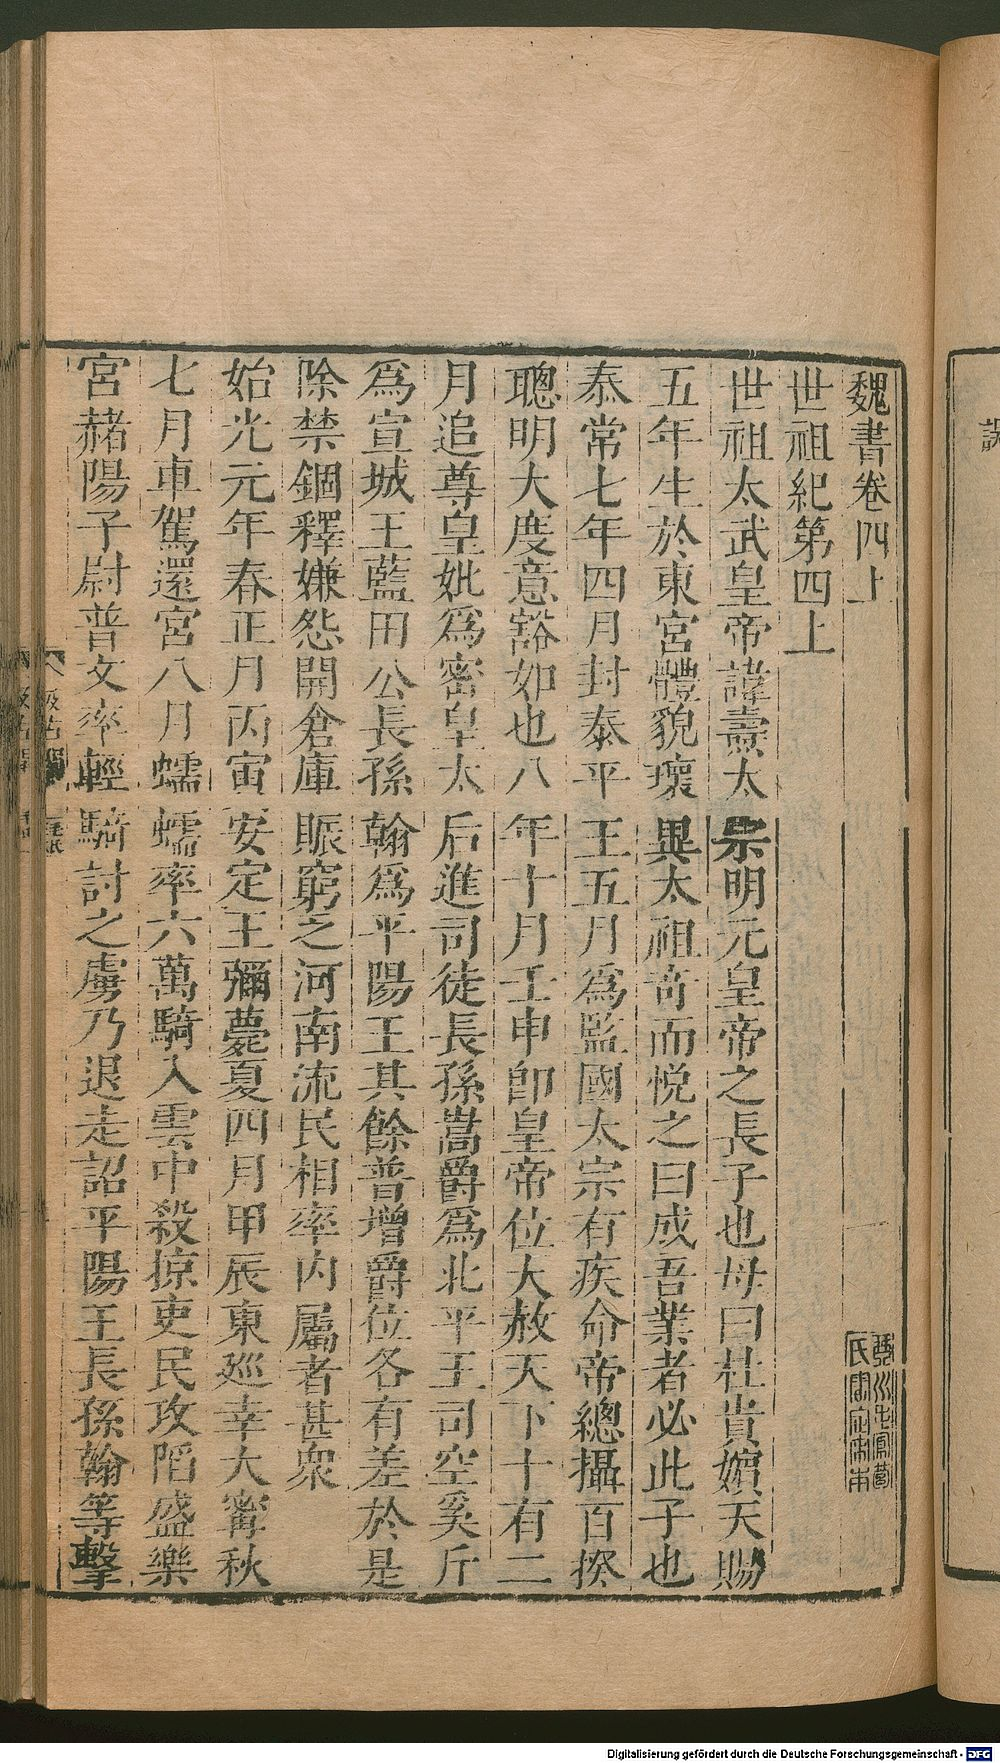 魏書卷四上
世祖紀第四上
世祖太武皇帝諱燾太宗明元皇帝之長子也母曰杜貴嬪天賜
五年生於東宮體貌瓌異太祖奇而悅之曰成吾業者必此子也
泰常七年四月封泰平王五月爲監國太宗有疾命帝總攝百揆
聰明大度意豁如也八年十月壬申卽皇帝位大赦天下十有二
月追尊皇妣爲密皇太后進司徒長孫嵩爵爲北平王司空奚斤
爲宣城王藍田公長孫翰爲平陽王其餘普增爵位各有差於是
除禁錮釋嫌怨開倉庫賑窮之河南流民相率內屬者甚衆
始光元年春正月丙寅安定王彌薨夏四月甲辰東巡幸大甯秋
七月車駕還宮八月蠕蠕率六萬騎入雲中殺掠吏民攻陷盛樂
宮赭陽子尉普文率輕騎討之虜乃退走詔平陽王長孫翰等擊
Digitalisierung gefördert durch die Deutsche Forschungsgemeinschaft - DFG